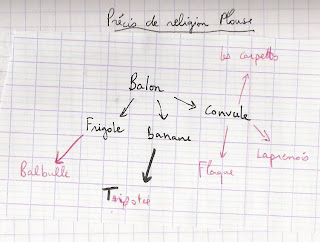 Précis de religion Plouse
les carpettes
Balon
Convule
Frigole
banane
Balbulle
Flaque
Laprenois